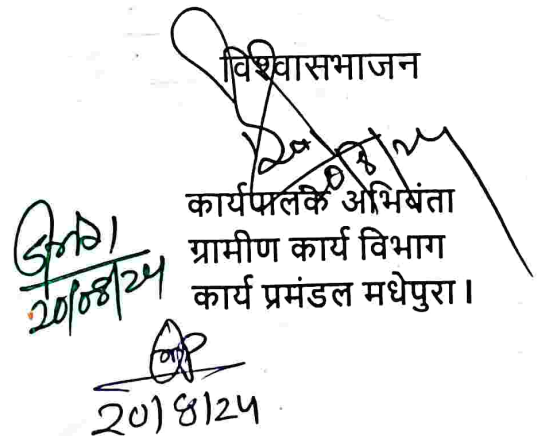 विश्वासभाजन
20/8/24
कार्यपालक अभियंता
ग्रामीण कार्य विभाग
कार्य प्रमंडल मधेपुरा।
20/08/24
20/8/24